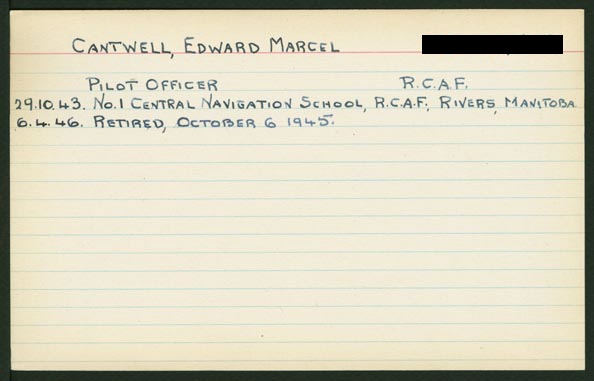 CANTWELL, EDWARD MARCEL
PILOT OFFICER R.C.A.F.
29.10.43. No.1 CENTRAL NAVIGATION SCHOOL, R.C.A.F., RIVERS, MANITOBA
6.4.46. RETIRED, OCTOBER 6 1945.